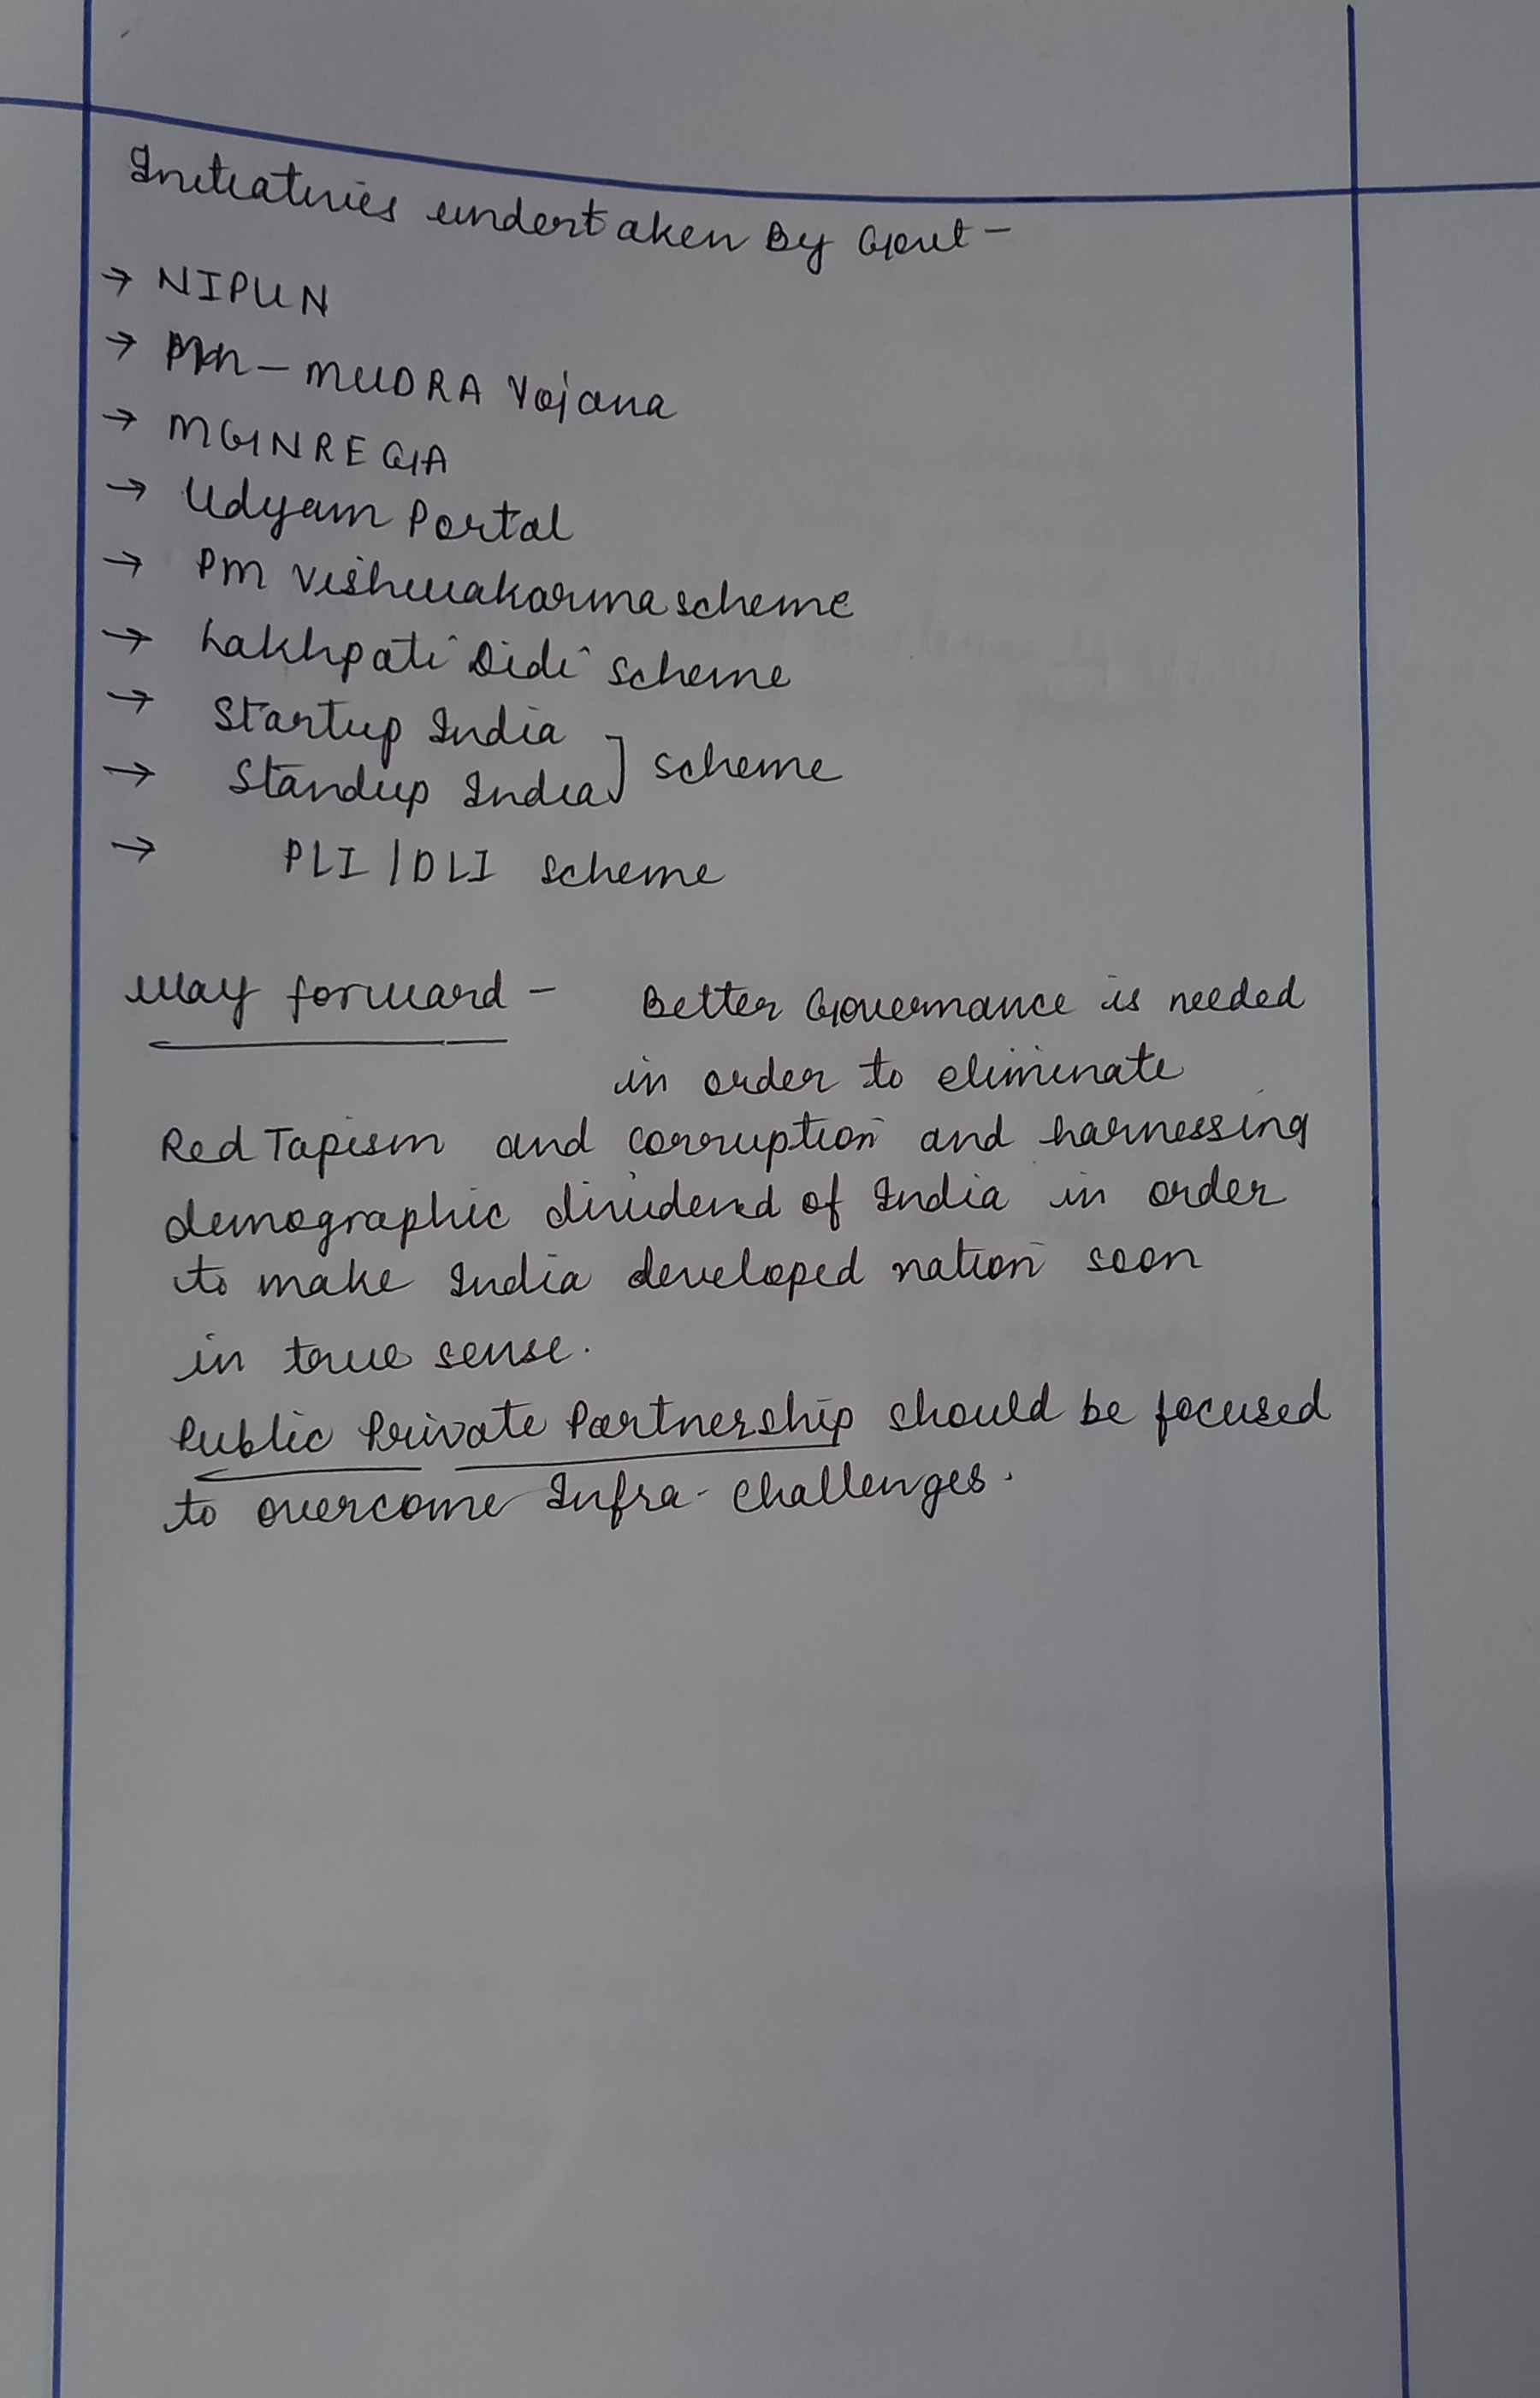 Initiatives undertaken By Govt -
→ NIPUN
→ PM - MUDRA Yojana
→ MGNREGA
→ Udyam Portal
→ PM Vishwakarma scheme
→ Lakhpati Didi Scheme
→ Startup India
→ Standup India ] scheme
→ PLI / DLI scheme
Way forward - Better Governance is needed
in order to eliminate
Red Tapism and corruption and harnessing
demographic dividend of India in order
to make India developed nation soon
in true sense.
Public Private Partnership should be focused
to overcome Infra- challenges.